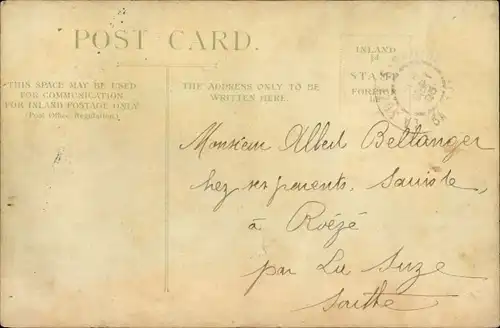 POST CARD.
THIS SPACE MAY BE USED
FOR COMMUNICATION
FOR INLAND POSTAGE ONLY
(Post Office Regulation)
THE ADDRESS ONLY TO BE
WRITTEN HERE.
INLAND
STAMP
FOREIGN
Monsieur Albert Beltanger
chez ses parents,
à Roézé
par La Suze
Sarthe